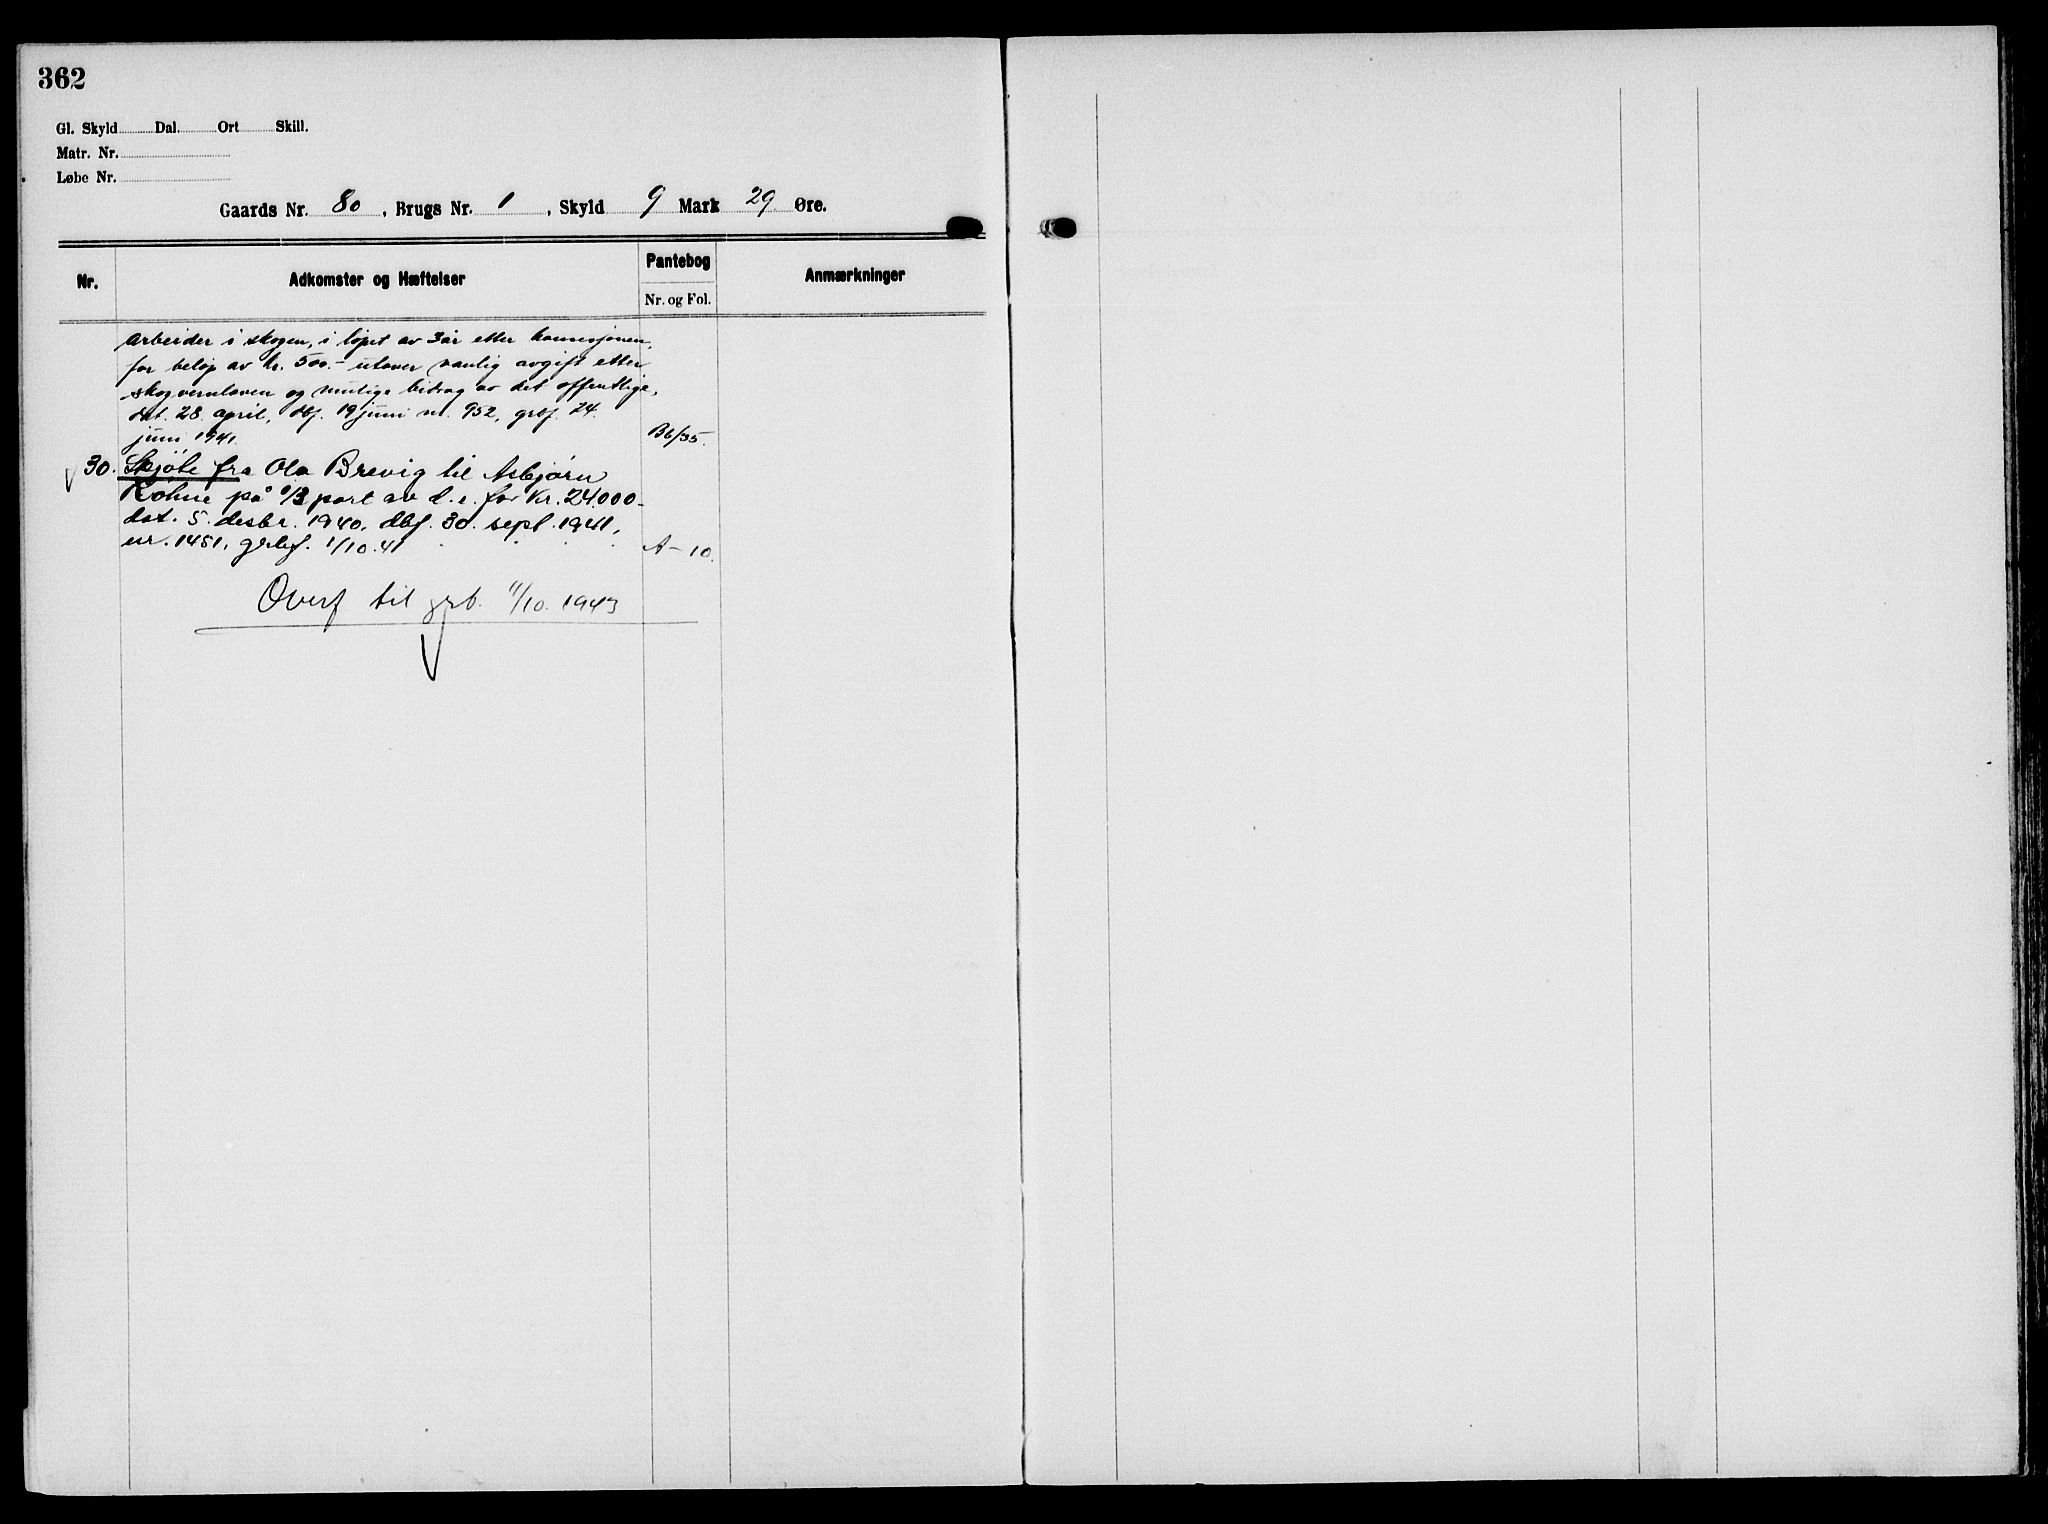 362
Gl. Skyld Dal. Ort Skill.
Matr. Nr.
Løbe Nr.
Gaards Nr. 80, Brugs Nr. 1, Skyld 9 Mark 29 Øre.
Nr. Adkomster og Hæftelser Pantebog Anmærkninger
Nr. og Fol.
arbeider i skogen, i løpet av 3 år etter konsesjonen,
for beløp av kr. 500.- utover vanlig avgift etter
skogvernloven og mulige bidrag av det offentlige,
dat. 28 april, dbf. 19 juni nr. 952, grbf. 24.
juni 1941. B6/35.
30. Skjøte fra Ola Brevig til Asbjørn
på part av d. e. for kr. 24.000-
dat. 5. desbr. 1940, dbf. 30. sept. 1941,
nr. 1451, grbf. 1/10.41 A-10.
Overf til grb. 11/10. 1943